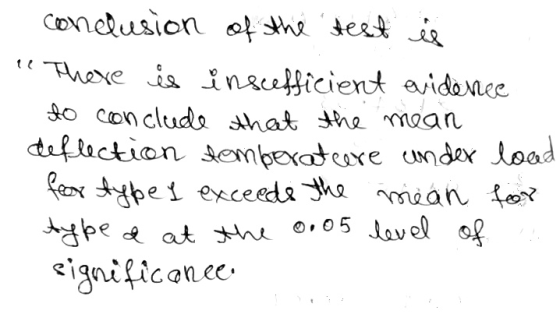 conclusion of the test is
"There is insufficient evidence
to conclude that the mean
deflection temperature under load
for type 1 exceeds the mean for
type 2 at the 0.05 level of
significance.